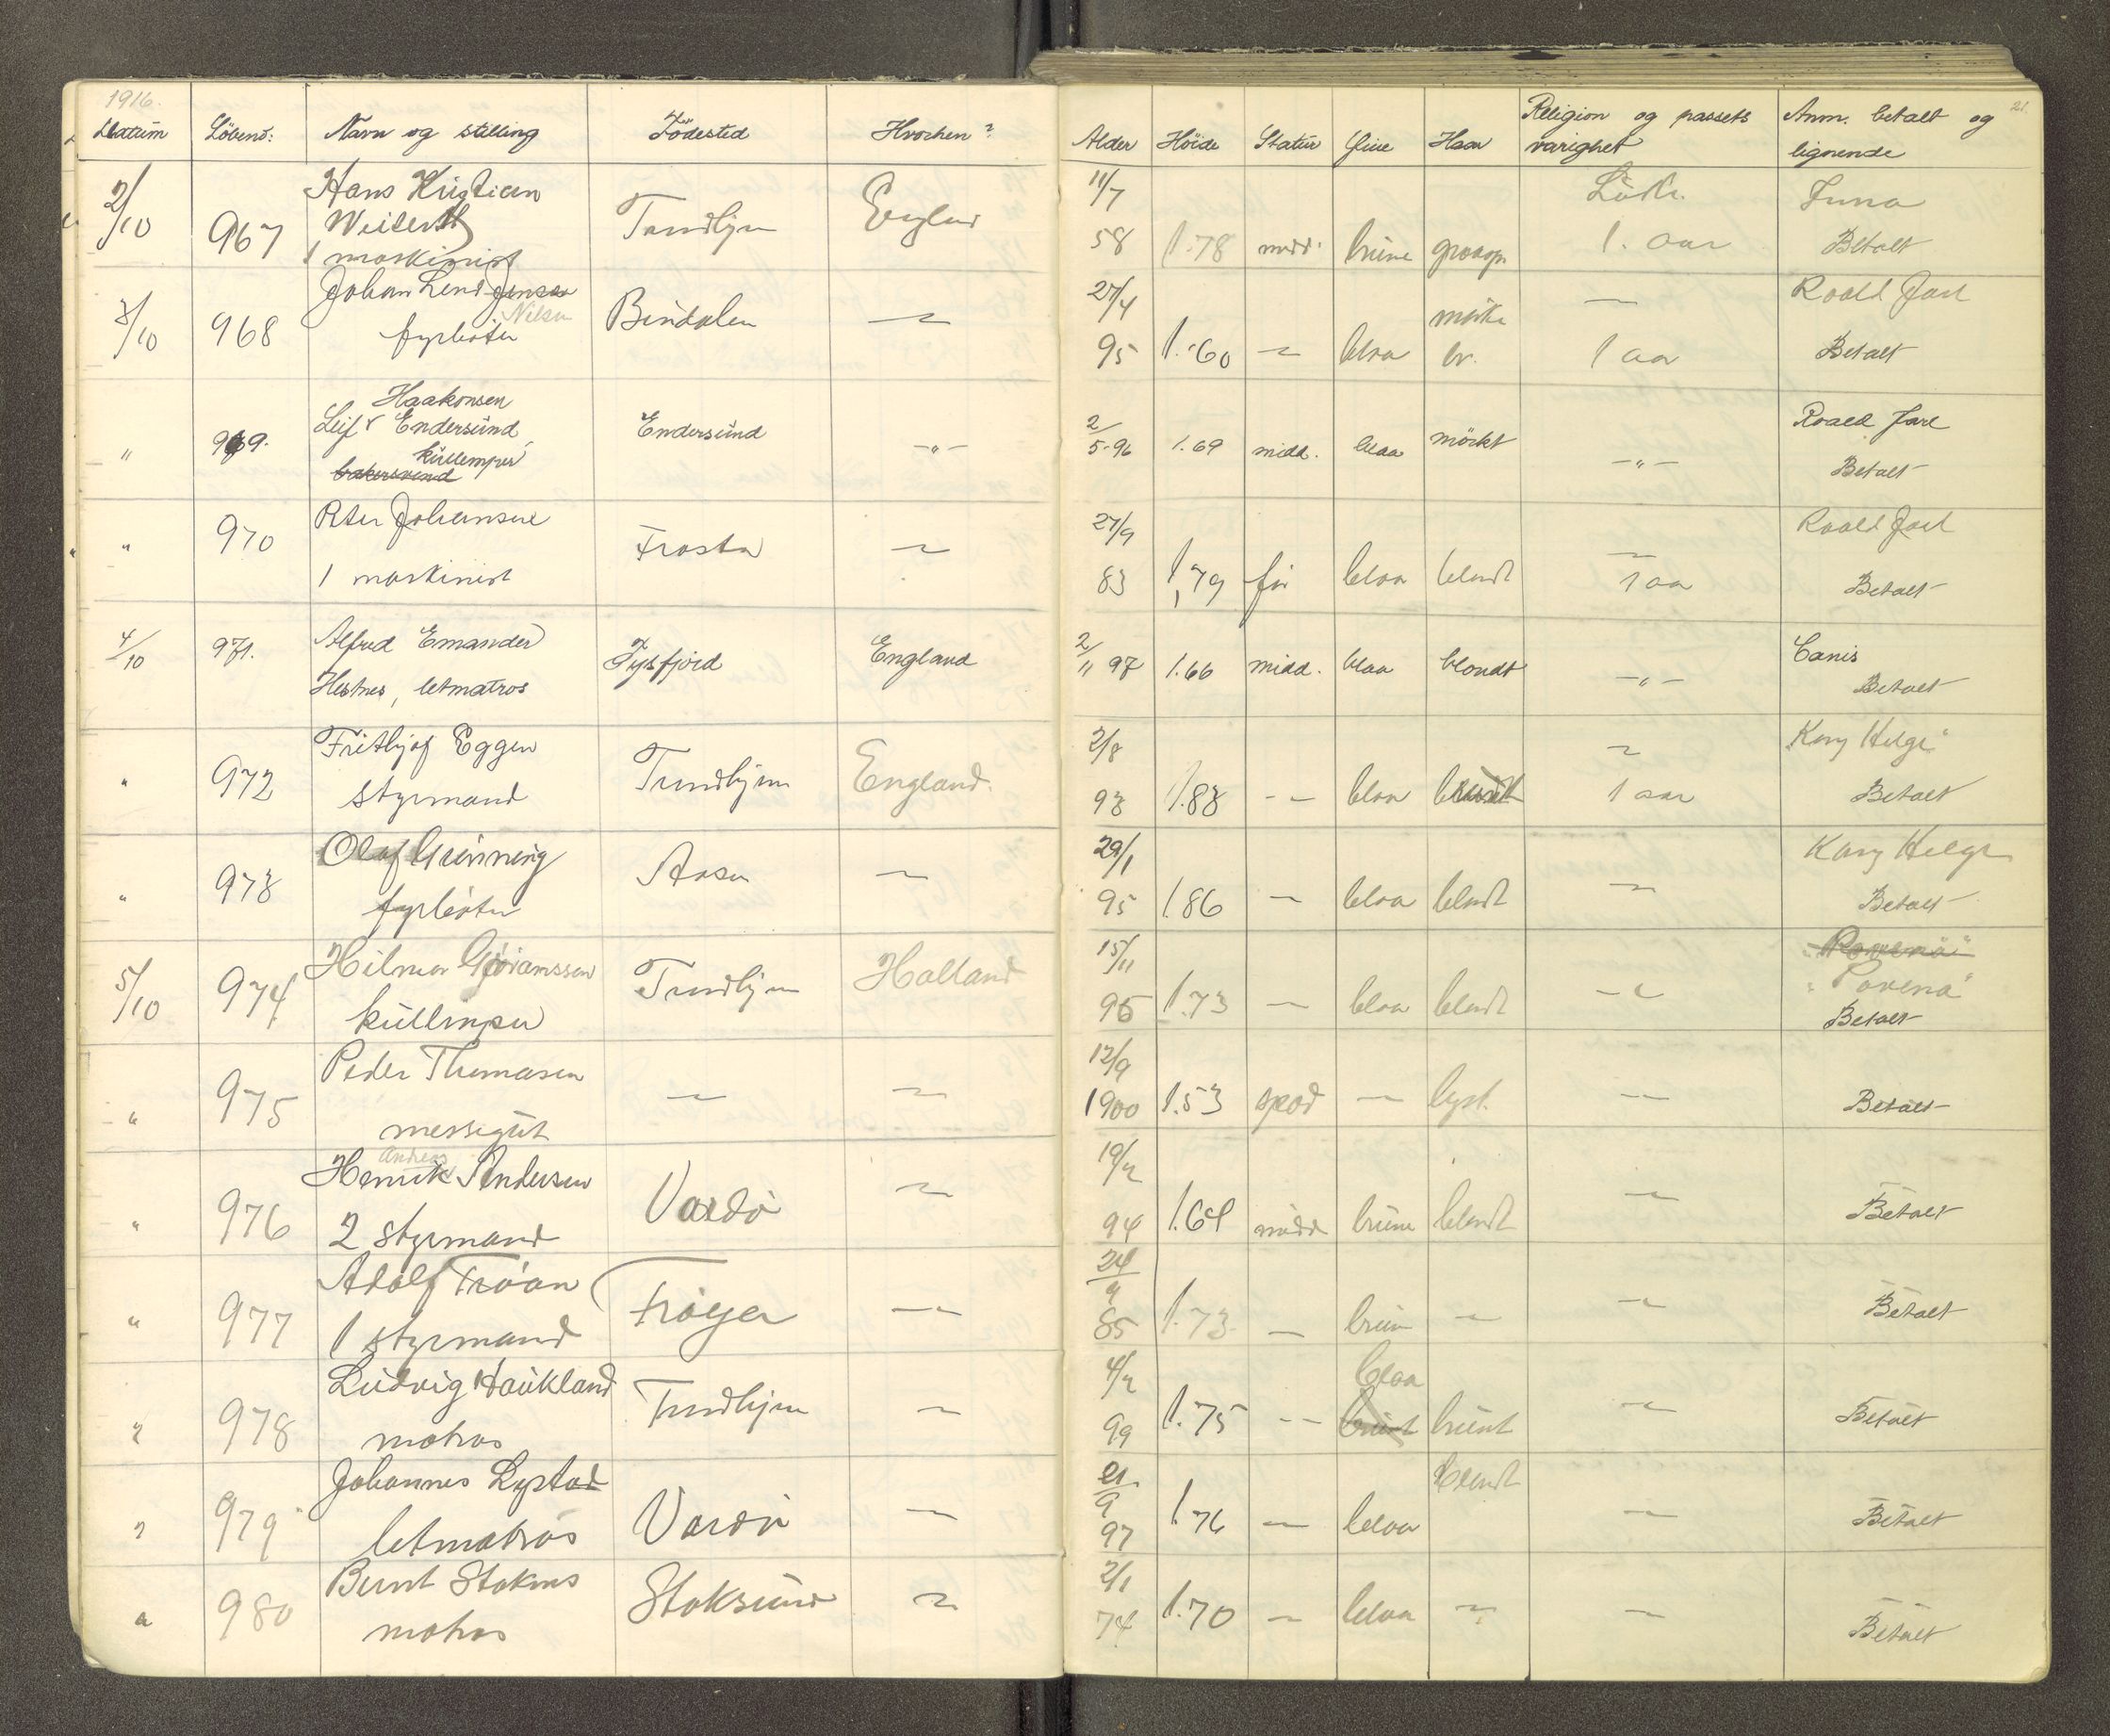 1916.
Datum Löbenr: Navn og stilling Födested Hvorhen? Alder Höide Statur Öine Haar Religion og passets varighet Anm. betalt og lignende
21.
2/10 967 Hans Kristian 1 maskinist Trondhjem England 11/7 58 1.78 midd. brune graaspr. Luth. 1. aar Juno Betalt
3/10 968 Johan Lend Jensen Nilsen fyrböter Bindalen — 27/4 95 1.60 — blaa mörke br. — 1 aar Roald Jarl Betalt
" 969. Haakonsen Leif v Endersund kullemper bakersvend Endersund -"- 2/5-96 1.69 midd. blaa mörkt -"- Roald Jarl Betalt
" 970 Peter Johansen 1 maskinist Frosta — 27/9 83 1,79 før blaa blondt — 1 aar Roald Jarl Betalt
4/10 971. Alfred Emander Hestnes, letmatros Tysfjord England 2/11 97 1.66 midd. blaa blondt -"- Canis Betalt
" 972 Frithjof Eggen styrmand Trondhjem England. 2/8 93 1.83 -- blaa — 1 aar Kong Helge" Betalt
" 973 Olaf Grönning fyrböter Aasen — 29/1 95 1.86 — blaa blondt — Kong Helge Betalt
5/10 974 Hilmar Gøransson kullemper Trondhjem Holland 15/11 96 1.73 — blaa blondt -"- "Rovena" "Rovena" Betalt
" 975 Peder Thomasen messegut — — 12/9 1900 1.53 spæd — lyst. — Betalt
" 976 Henrik Andreas Andersen 2 styrmand Vardö — 19/2 94 1.64 midd brune blondt — Betalt
" 977 Adolf Fröan 1 styrmand Fröyen — 24/9 85 1.73. — brun — — Betalt
" 978 Ludvig Haukland matros Trondhjem — 4/2 99 1.75 -- blaa brunt brunt — Betalt
" 979 Johannes Lystad letmatros Vardö — 21/9 97 1.76 — blaa blondt — Betalt
" 980 Bernt Stoknes matros Stoksund — 2/1 74 1.70 — blaa — — Betalt